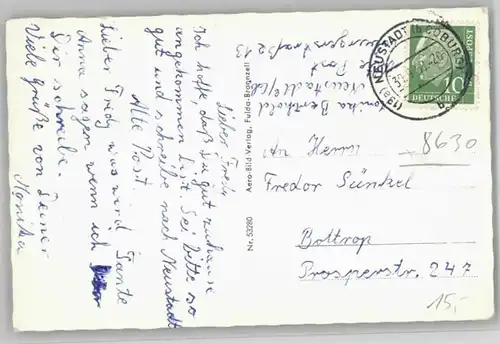 Lieber Fred!
Ich hoffe, daß Du gut zuhause
angekommen bist. Sei bitte so
gut und schreibe nach Neustadt
Alte Post.
Lieber Fredy was wird Tante
Anna sagen wenn ich
Dir schreibe.
Viele Grüße von Deiner
Monika
Nr. 53280
Aero-Bild-Verlag, Fulda-Bronnzell
Monika Berthold
Neustadt/Cbg
Alte Post
NEUSTADT (b COBURG)
(13a)
10
DEUTSCHE
POST
An Herrn
Fredor Sünkel
Bottrop
Prosperstr. 247
8630
15,-